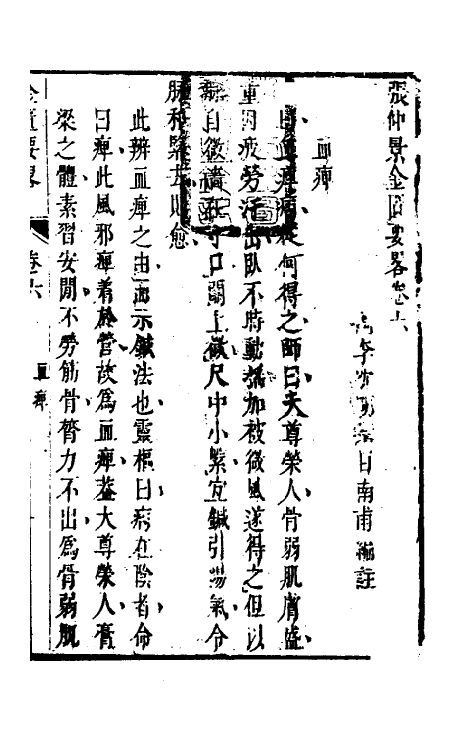 張仲景金匱要畧卷六
李 日南甫 編註
血痺
問曰血痺病從何得之師曰夫尊榮人骨弱肌膚盛
重因疲勞汗出臥不時動搖加被微風遂得之但以
脉自微濇在寸口關上微尺中小緊宜鍼引陽氣令
脉和緊去則愈
此辨血痺之由而示鍼法也靈樞曰病在陰者命
曰痺此風邪痺着於營故爲血痺葢大尊榮人膏
梁之體素習安閒不勞筋骨膂力不出爲骨弱肌
金匱要畧 卷六 血痺